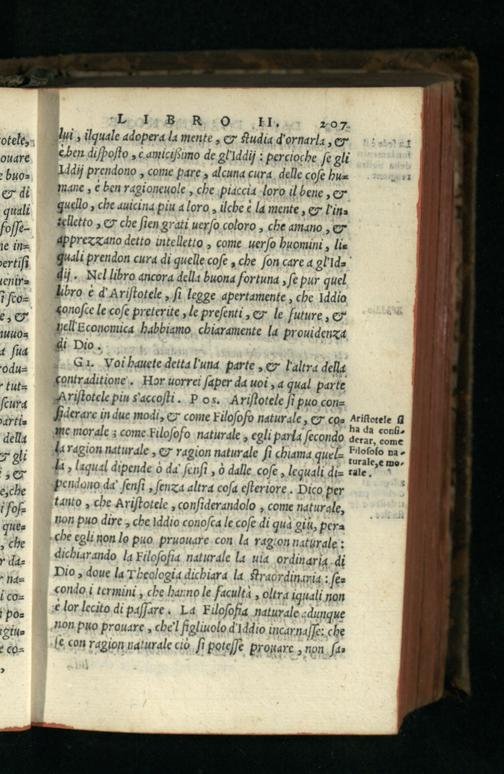 LIBRO II. 207
lui, ilquale adopera la mente, & studia d'ornarla, &
e ben disposto, e amicissimo de gl'Iddij: percioche se gli
Iddij prendono, come pare, alcuna cura delle cose hu=
mane, è ben ragioneuole, che piaccia loro il bene, &
quello, che auicina piu a loro, ilche è la mente, & l'in=
telletto, & che sien grati uerso coloro, che amano, &
apprezzano detto intelletto, come uerso huomini, li=
quali prendon cura di quelle cose, che son care a gl'Id=
dij. Nel libro ancora della buona fortuna, se pur quel
libro è d'Aristotele, si legge apertamente, che Iddio
conosce le cose preterite, le presenti, & le future, &
nell'Economica habbiamo chiaramente la prouidenza
di Dio.
GI. Voi hauete detta l'una parte, & l'altra della
contraditione. Hor uorrei saper da uoi, a qual parte
Aristotele piu s'accosti. POS. Aristotele si puo con=
siderare in due modi, & come Filosofo naturale, & co=
me morale; come Filosofo naturale, egli parla secondo
la ragion naturale, & ragion naturale si chiama quel=
la, laqual dipende ò da' sensi, ò dalle cose, lequali di=
pendono da' sensi, senza altra cosa esteriore. Dico per
tanto, che Aristotele, considerandolo, come naturale,
non puo dire, che Iddio conosca le cose di qua giu, per=
che egli non lo puo pruouare con la ragion naturale:
dichiarando la Filosofia naturale la uia ordinaria di
Dio, doue la Theologia dichiara la straordinaria: se=
condo i termini, che hanno le facultà, oltra iquali non
è lor lecito di passare. La Filosofia naturale adunque
non puo prouare, che'l figliuolo d'Iddio incarnasse: che
se con ragion naturale ciò si potesse prouare, non sa=
Aristotele si
ha da consi=
derar, come
Filosofo na=
turale, e mo=
rale.
otele,
ouare
e buo=
& di
quali
fosse=
ne in=
pertisi
uenir=
si sco=
e, &
nuuo=
a sua
rodu=
r tut=
scura
parti=
della
& gli
i, &
e, che
i fos=
que=
, che
r da=
r na=
i co=
i po=
igiu=
e co=
,